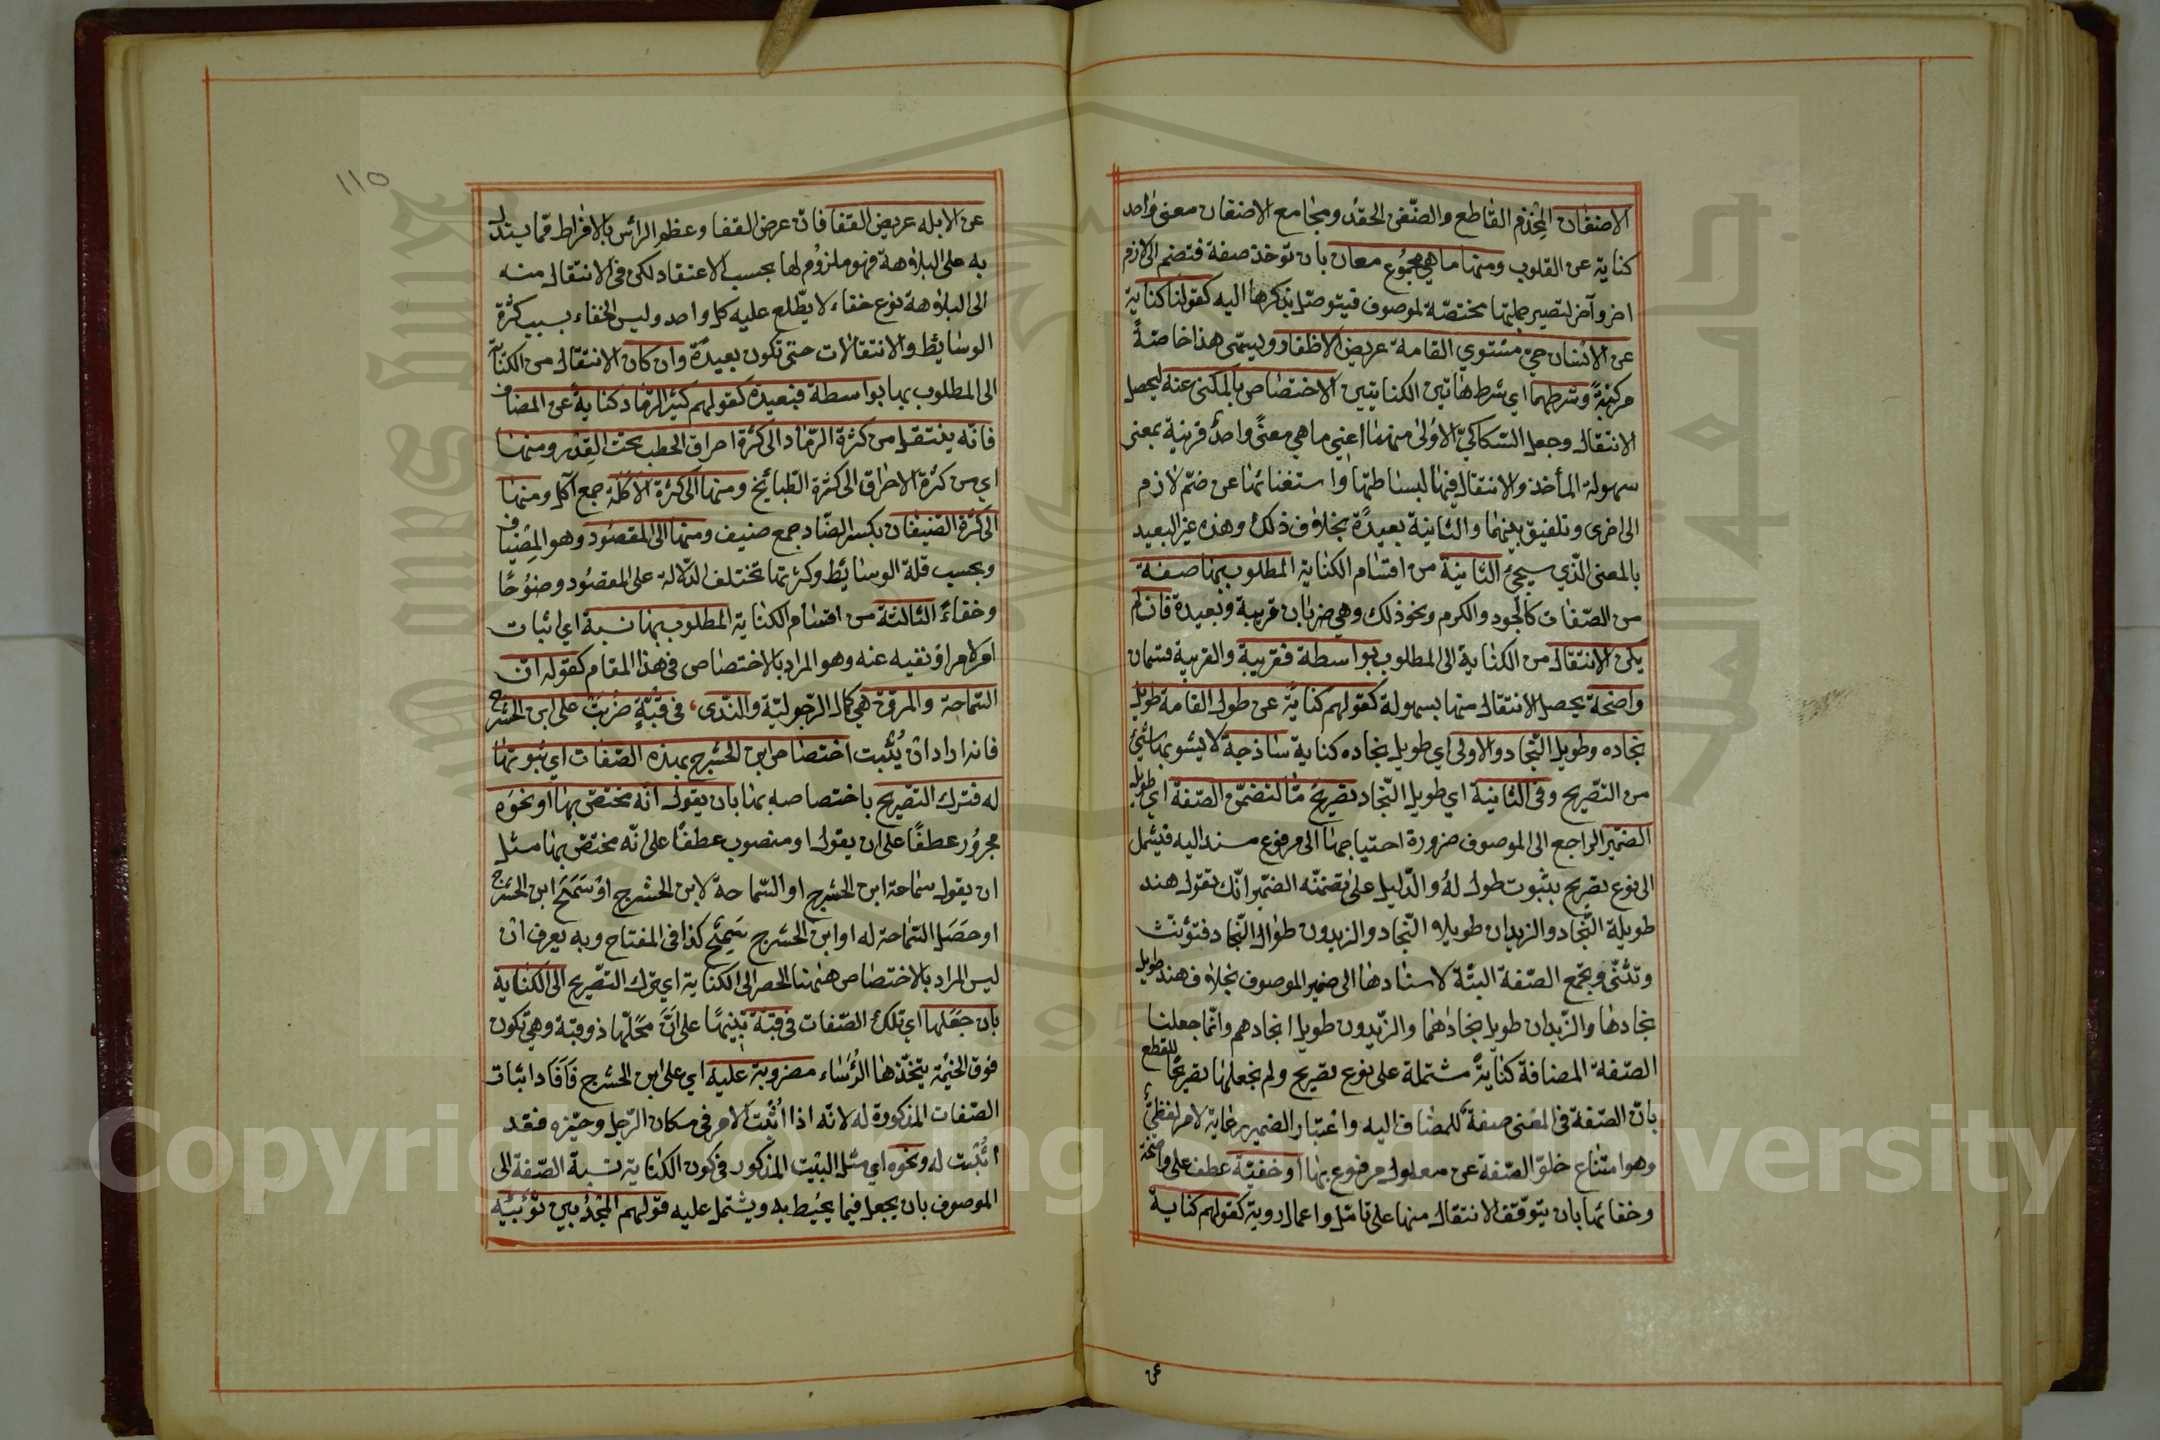 الاضغان المِخذم القاطع والضّغن الحقد ومجامع الاضغان معنى واحد
كناية عن القلوب ومنها ما هي مجمُوع معان بان توخذ صفة فتضم الى لازم
اخر وآخر لتصير جملتها مختصّة لموصوف فيتوصّل بذكرها اليه كقولنا كناية
عن الانسان حيّ مستوي القامة عريض الاظفار ويسمّى هذا خاصّةً
مركبّةً وشرطهما اي شرط هاتين الكنايتين الاختصاص بالمكنى عنه ليحصل
الانتقال وجعل السّكاكيّ الاولى منهما اعني ما هي معنًى واحدٌ قريبة بمعنى
سهولة المأخذ والانتقال فيها لبساطتها واستغنائها عن ضمّ لازم
الى اخرى وتلفيق بينهما والثانية بعيدةً بخلاف ذلك وهذه غير البعيد
بالمعنى الّذي سيجئ الثانية من اقسام الكناية المطلوب بها صفة
من الصّفات كالجود والكرم ونحو ذلك وهي ضربان قريبة وبعيدة فان لم
يكن الانتقال من الكناية الى المطلوب بواسطة فقريبة والقريبة قسمان
واضحة يحصل الانتقال منها بسهولة كقولهم كنايةً عن طول القامة طويل
نجاده وطويل النّجاد والاولى اي طويل نجاده كناية ساذجة لا يشوبها شئ
من التصّريح وفى الثانية اي طويل النّجاد تصريحٌ مّا لتضمّن الصّفة اي طويل
الضمّير الراجع الى الموصوف ضرورة احتياجها الى مرفوع مسند اليه فيشمل
الى نوع تصريح بثبوت طول لهُ والدّليل على تضمّنه الضمّير انّك تقول هند
طويلة النّجاد والزيدان طويلا النّجاد والزيدون طوال النّجاد فتؤنّث
وتثنّى وتجمع الصّفة البتّة لاسنادها الى ضمير الموصوف بخلاف هند طويل
نجادها والزّيدان طويل نجادهما والزّيدون طويل انجادهم وانّما جعلنا
الصّفة المضافة كنايةً مشتملة على نوع تصريح ولم نجعلها تصريحًا للقطع
بانّ الصّفة فى المعنى صفةٌ للمضاف اليه واعتبار الضمير رعاية لامر لفظيّ
وهو امتناع خلوّ الصّفة عن معمول مرفوع بها او خفيّة عطف على واضحة
وخفائها بان يتوقّف الانتقال منها على تامّل واعمال روية كقولهم كناية
عن
١١٥
عن الابله عريض القفا فانّ عرض القفا وعظم الرائس بالافراط ممّا يستدل
به على البلاهة فهو ملزوم لها بحسب الاعتقاد لكن فى الانتقال منه
الى البلاهة نوع خفاء لا يطّلع عليه كل واحد وليس الخفاء بسبب كثرة
الوسايط والانتقالات حتى تكون بعيدةً وان كان الانتقال من الكناية
الى المطلوب بها بواسطة فبعيدة كقولهم كثير الرّماد كنايةً عن المضاف
فانّه ينتقل من كثرة الرّماد الى كثرة احراق الحطب تحت القِدْر ومنها
اي من كثرة الاحراق الى كثرة الطّبائخ ومنها الى كثرة الاكَلَة جمع آكل ومنها
الى كثرة الضّيفان بكسر الضّاد جمع ضيف ومنها الى المقصُود وهو المِضياف
وبحسب قلّة الوسائط وكثرتها تختلف الدّلالة على المقصُود وضوُحًا
وخفاءً الثالثة من اقسام الكناية المطلوب بها نسبة اي اثبات
امر لامر او نفيه عنه وهو المراد بالاختصاص فى هذا المقام كقوله انّ
السّماحة والمروّة هي كمال الرّجوليّة والنّدى، فى قبّةٍ ضُربتْ على ابن الحشرج
فانه اراد ان يُثْبت اختصاص ابن الحشرج بهذه الصّفات اي ثبوتها
له فترك التصّريح باختصاصه بها بان يقول انّه مختصّ بها او نحوَه
مجرُور عطفًا على ان يقول او منصوب عطفًا على انّه مختصّ بها مثل
ان يقول سماحة ابن الحشرج او السّماحة لابن الحشرج اوْ سَمَحَ ابن الحشرج
او حَصَل السّماحة له او ابن الحشرج سَمِحٌ كذا فى المفتاح وبه يعرف انْ
ليس المراد بالاختصاص هٰهنا الحصر الى الكناية اي ترك التصّريح الى الكناية
بان جَعَلها اي تلك الصّفات فى قبّة تنبيهًا على انّ محلّها ذو قبّة وهي تكون
فوق الخيمة يتّخذها الرُؤساء مضروبة عليه اي على ابن الحشرج فَاَفَاد اثبات
الصّفات المذكورة له لانّه اذا اُثْبتَ الامر فى مكان الرّجل وحيّزه فقد
اُثْبت له ونحوه اي مثل البيت المذكور فى كون الكناية نسبة الصّفة الى
الموصوف بان يجعل فيما يحُيط به ويشتمل عليه قولهم المجدُ بين ثوْبَيْه
Copyright © King Saud University